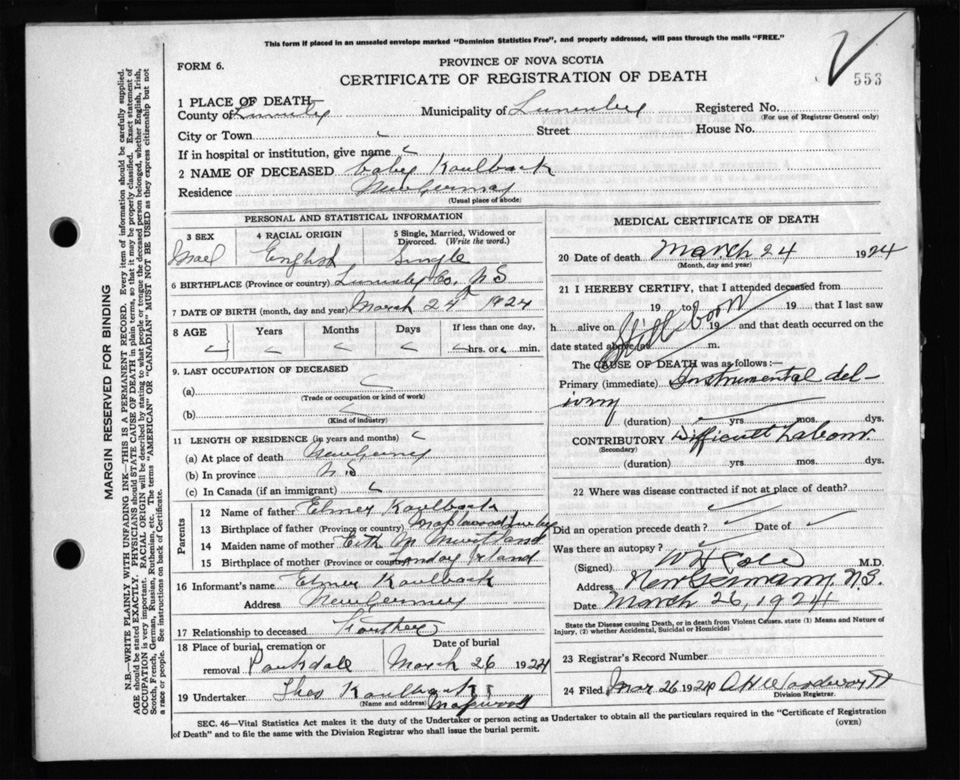 This form if placed in an unsealed envelope marked "Dominion Statistics Free", and properly addressed, will pass through the mails "FREE."
FORM 6.
PROVINCE OF NOVA SCOTIA
CERTIFICATE OF REGISTRATION OF DEATH
553
1 PLACE OF DEATH
County of Municipality of Registered No.
(For use of Registrar General only)
City or Town Street House No.
If in hospital or institution, give name
2 NAME OF DECEASED baby Kaulback
Residence New Germany
(Usual place of abode)
PERSONAL AND STATISTICAL INFORMATION
3 SEX
4 RACIAL ORIGIN
5 Single, Married, Widowed or Divorced. (Write the word.)
Mael English Single
6 BIRTHPLACE (Province or country) Co, N S
7 DATE OF BIRTH (month, day and year) March 24th 1924
8 AGE Years Months Days If less than one day,
hrs. or min.
9. LAST OCCUPATION OF DECEASED
(a)
(Trade or occupation or kind of work)
(b)
(Kind of industry)
11 LENGTH OF RESIDENCE (in years and months)
(a) At place of death
(b) In province N S
(c) In Canada (if an immigrant)
Parents
12 Name of father Elmer Kaulback
13 Birthplace of father (Province or country) Maplewood
14 Maiden name of mother
15 Birthplace of mother (Province or country)
16 Informant's name Elmer Kaulback
Address
17 Relationship to deceased
18 Place of burial, cremation or removal
Date of burial
March 26 1924
19 Undertaker Theo Kaulback
(Name and address) Maplewood
MEDICAL CERTIFICATE OF DEATH
20 Date of death March 24 1924
(Month, day and year)
21 I HEREBY CERTIFY, that I attended deceased from
19 to 19 that I last saw
h alive on 19 and that death occurred on the
date stated above at m.
Still born
The CAUSE OF DEATH was as follows:—
Primary (immediate) Instrumental del-
ivery
(duration) yrs. mos. dys.
CONTRIBUTORY Difficult Labour.
(Secondary)
(duration) yrs. mos. dys.
22 Where was disease contracted if not at place of death?
Did an operation precede death? Date of
Was there an autopsy?
(Signed) M.D.
Address New Germany, N.S.
Date March 26, 1924
State the Disease causing Death, or in death from Violent Causes, state (1) Means and Nature of Injury, (2) whether Accidental, Suicidal or Homicidal
23 Registrar's Record Number
24 Filed Mar 26 1924
Division Registrar.
SEC. 46—Vital Statistics Act makes it the duty of the Undertaker or person acting as Undertaker to obtain all the particulars required in the "Certificate of Registration
of Death" and to file the same with the Division Registrar who shall issue the burial permit.
(OVER)
MARGIN RESERVED FOR BINDING
N.B.—WRITE PLAINLY WITH UNFADING INK—THIS IS A PERMANENT RECORD. Every item of information should be carefully supplied.
AGE should be stated EXACTLY. PHYSICIANS should STATE CAUSE OF DEATH in plain terms, so that it may be properly classified. Exact statement of
OCCUPATION is very important. RACIAL ORIGIN will be described by stating to what people or tongue the deceased person belonged, whether English, Irish,
Scotch, French, German, Russian, Ruthenian, etc. The terms "AMERICAN" OR "CANADIAN" MUST NOT BE USED as they express citizenship but not
a race or people. See instructions on back of Certificate.